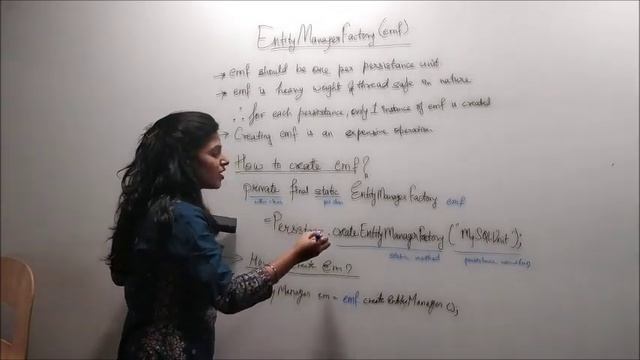 EntityManagerFactory (emf)
→ emf should be one per persistance unit
→ emf is heavy weight & thread safe in nature
∴ for each persistance, only 1 instance of emf is created
→ Creating emf is an expensive operation
How to create emf?
private final static EntityManagerFactory emf
= Persistance.createEntityManagerFactory ("MySQLUnit");
static method
Em?
Manager em = emf.createEntityManager();